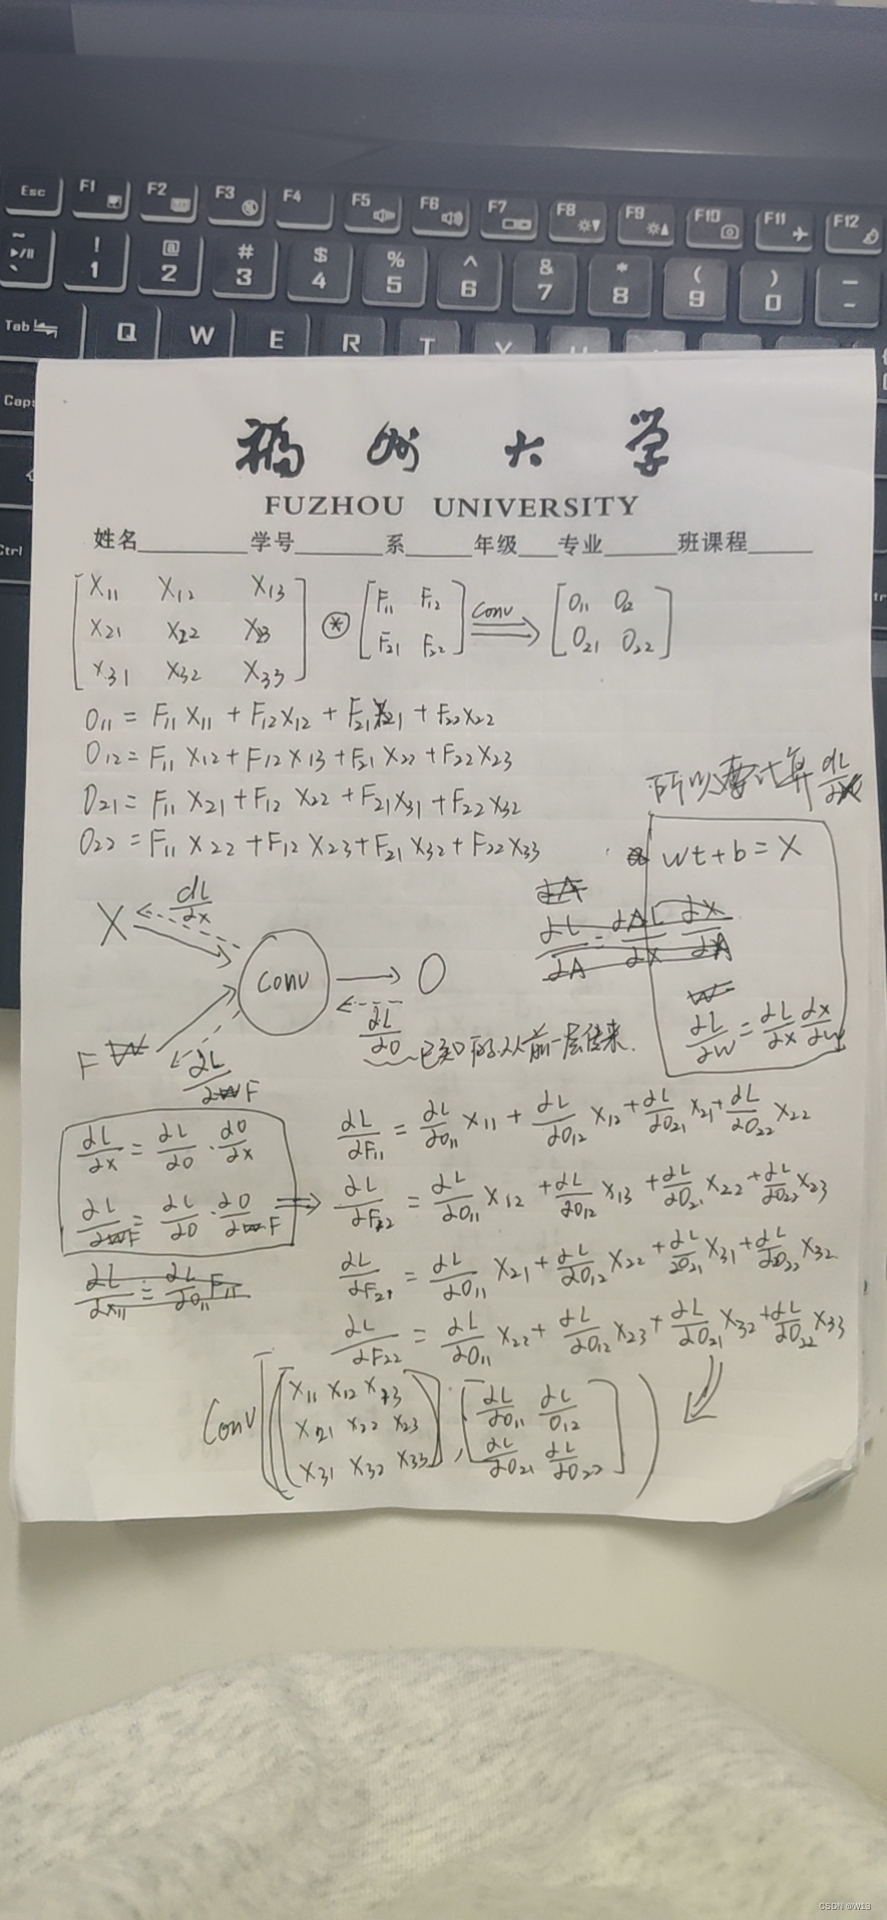 Esc F1 F2 F3 F4 F5 F6 F7 F8 F9 F10 F11 F12
~ ` ! 1 @ 2 # 3 $ 4 % 5 ^ 6 & 7 * 8 ( 9 ) 0 — -
Tab Q W E R T Y U
Caps
Ctrl
福州大学
FUZHOU UNIVERSITY
姓名________学号______系_____年级___专业_____班课程_____
[X11 X12 X13] ⊛ [F11 F12] Conv ⟹ [O11 O12]
[X21 X22 X23] [F21 F22] [O21 O22]
[X31 X32 X33]
O11 = F11 X11 + F12 X12 + F21 X21 + F22 X22
O12 = F11 X12 + F12 X13 + F21 X22 + F22 X23
O21 = F11 X21 + F12 X22 + F21 X31 + F22 X32
O22 = F11 X22 + F12 X23 + F21 X32 + F22 X33
所以要计算 ∂L/∂X
wt+b=X
∂L/∂w = ∂L/∂x ∂x/∂w
X ∂L/∂x
Conv → O
F ∂L/∂F
∂L/∂O 已知的从前一层传来.
∂L/∂x = ∂L/∂O · ∂O/∂x
∂L/∂F = ∂L/∂O · ∂O/∂F ⟹
∂L/∂F11 = ∂L/∂O11 X11 + ∂L/∂O12 X12 + ∂L/∂O21 X21 + ∂L/∂O22 X22
∂L/∂F12 = ∂L/∂O11 X12 + ∂L/∂O12 X13 + ∂L/∂O21 X22 + ∂L/∂O22 X23
∂L/∂F21 = ∂L/∂O11 X21 + ∂L/∂O12 X22 + ∂L/∂O21 X31 + ∂L/∂O22 X32
∂L/∂F22 = ∂L/∂O11 X22 + ∂L/∂O12 X23 + ∂L/∂O21 X32 + ∂L/∂O22 X33
Conv ( [X11 X12 X13] , [∂L/∂O11 ∂L/O12] )
[X21 X22 X23] [∂L/∂O21 ∂L/∂O22]
[X31 X32 X33]
CSDN @W13